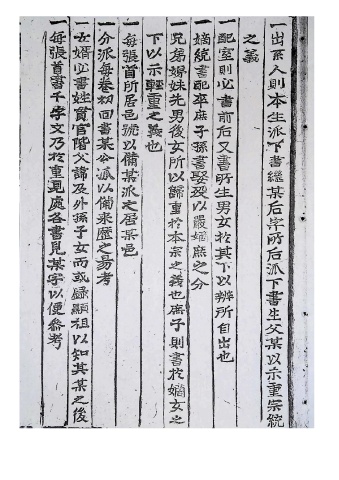 一出系人則本生派下書繼某后字所后派下書生父某以示重宗統
之義
一配室則必書前后又書所生男女於其下以辨所自出也
一嫡統書配卒庶子孫書娶歿以嚴嫡庶之分
一兄弟娚妹先男後女所以歸重於本宗之義也庶子則書於嫡女之
下以示輕重之義也
一每張首所居邑號以備某派之居某邑
一分派每卷初回書某公派以備来歷之易考
一女婿必書姓貫官階父諱及外孫子女而或錄顯祖以知其某之後
一每張首書千字文乃於重見處各書見某字以便參考